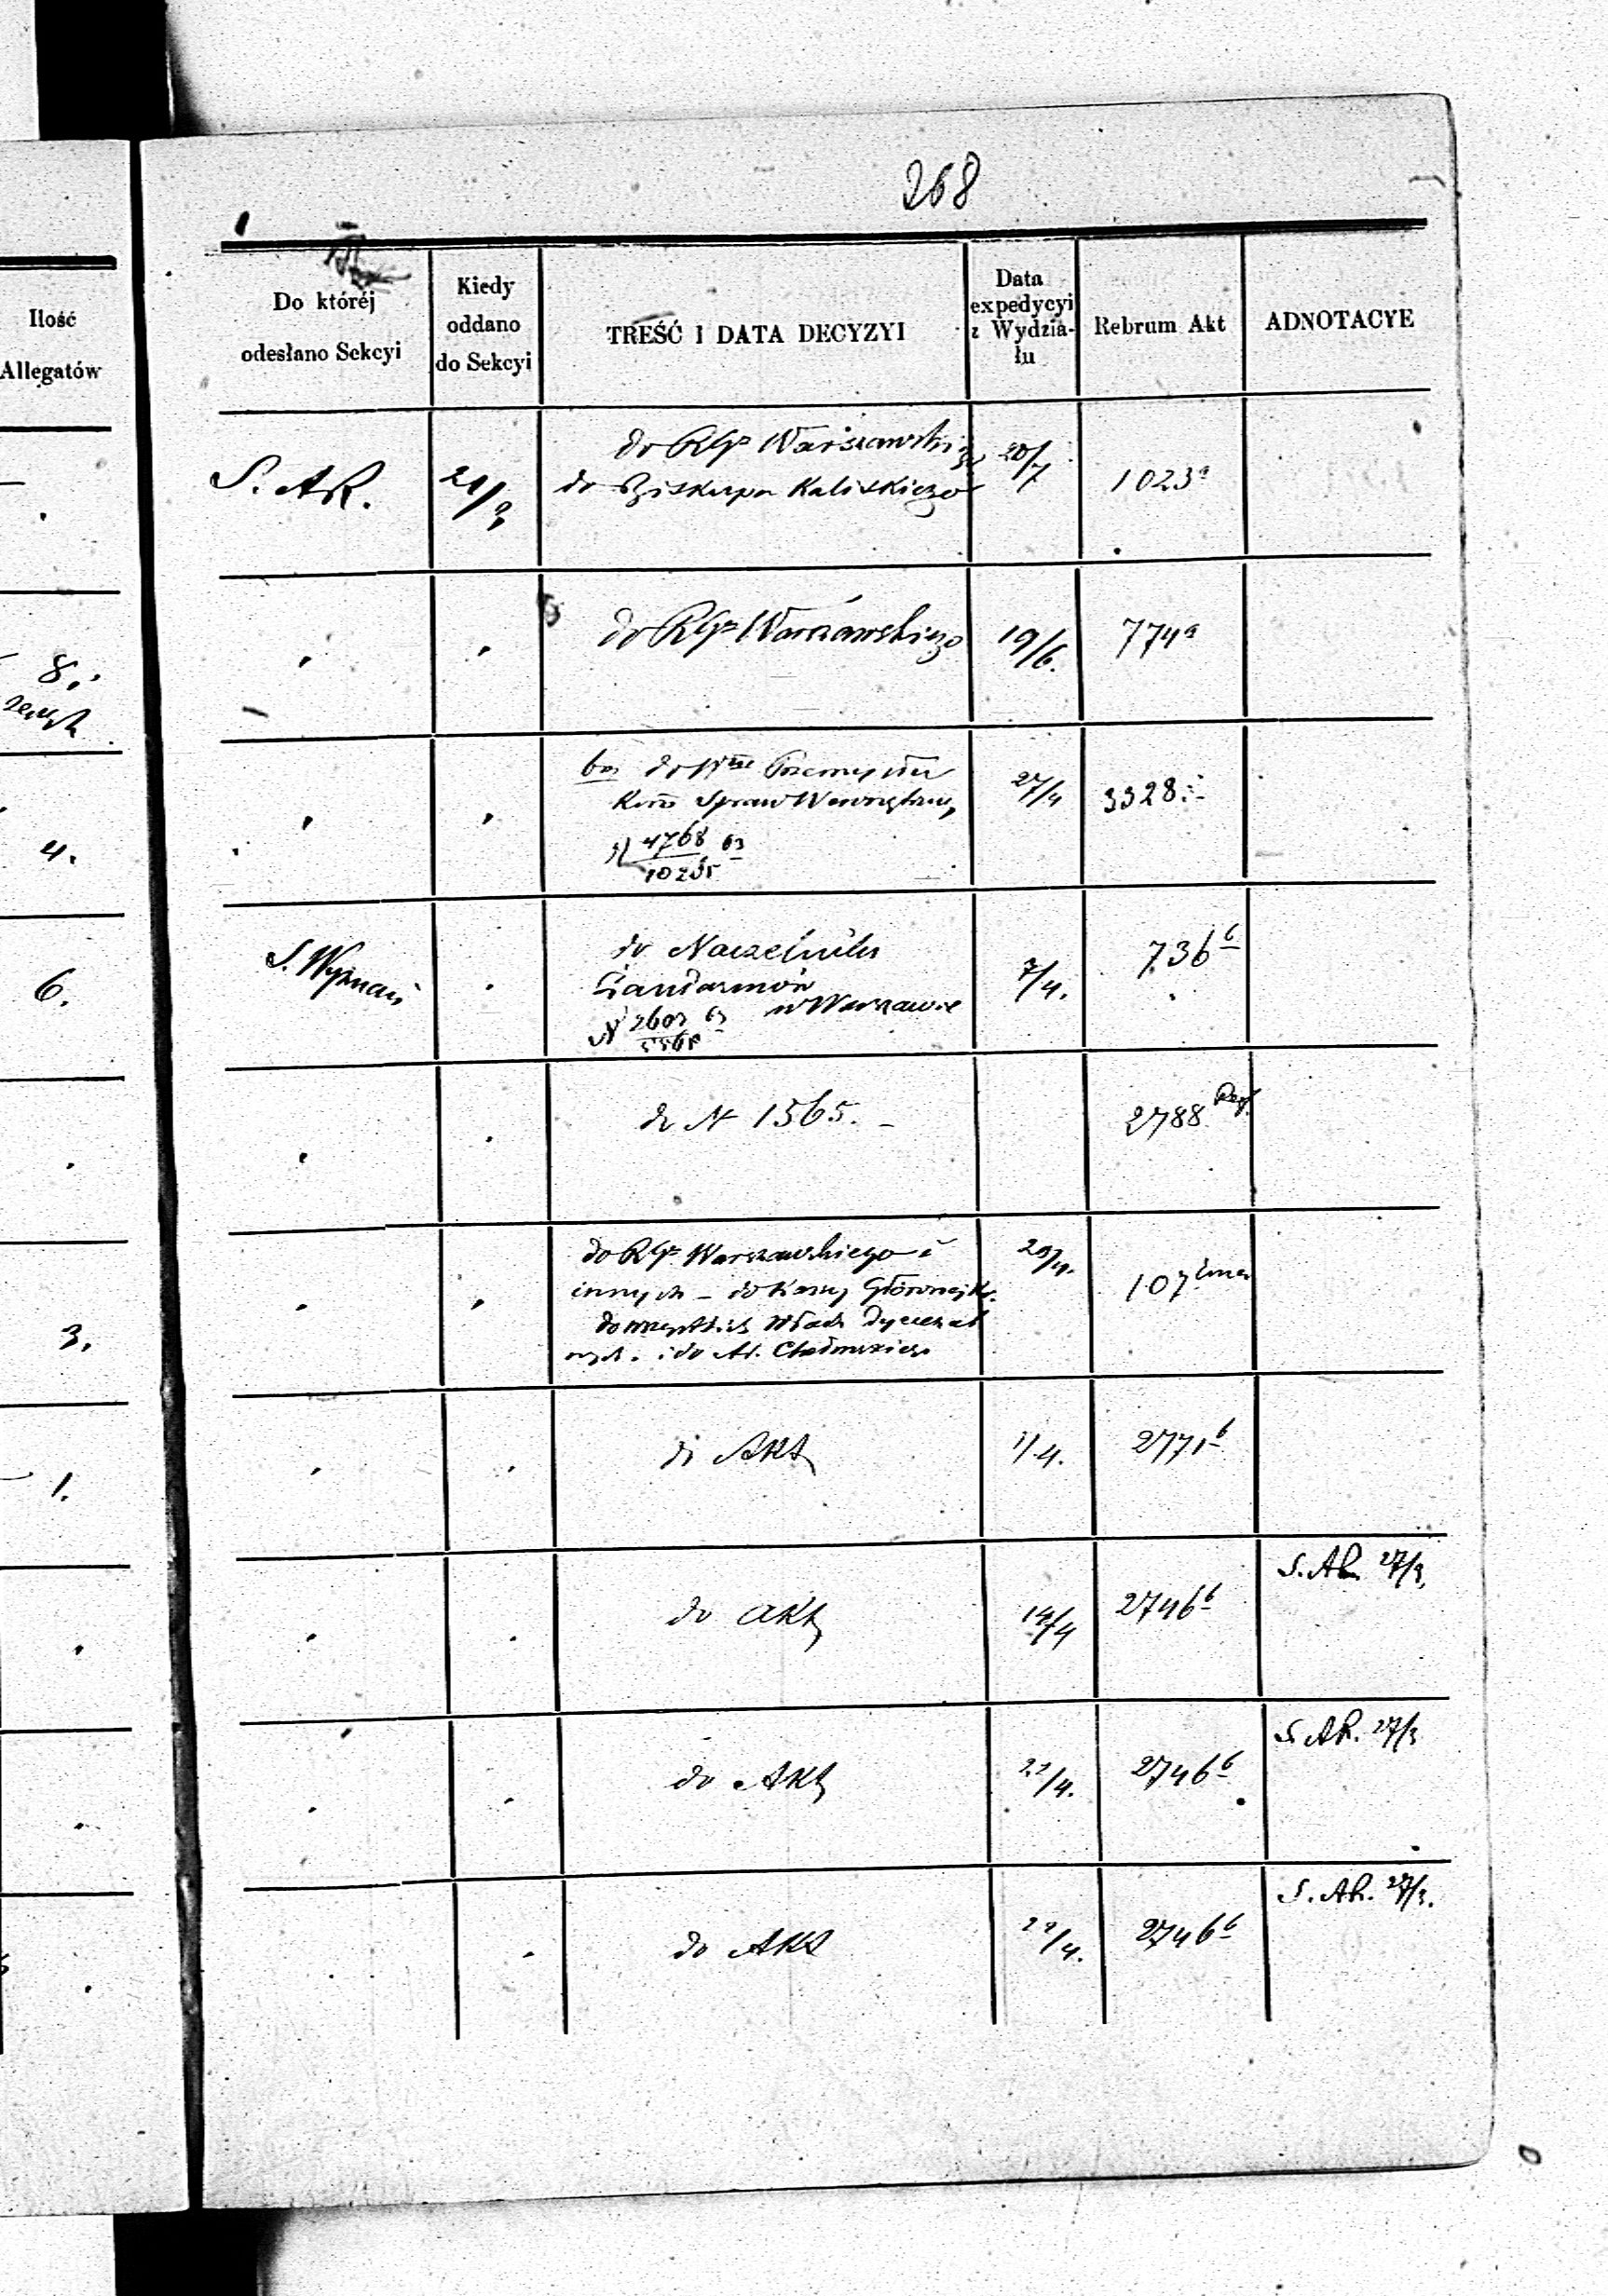 268
Ilość
Allegatów
Do któréj
odesłano Sekcyi
Kiedy
oddano
do Sekcyi
TREŚĆ I DATA DECYZYI
Data
expedycyi
z Wydzia-
łu
Rebrum Akt
ADNOTACYE
S. AR. 21/3
do RGo Warszawskiego
do Biskupa Kaliskiego
20/7
1023a
8.
do RGo Warszawskiego
19/6.
774a
4.
do Przemysłu
Kom Spraw Wewnętrzny
N 4768/10235 63
27/4
3328
6.
S. Wyznań
do Naczelnika
Żandarmów
w Warszawie
N 2603 63
7/4.
736b
do N 1565.
2788
3.
do RGo Warszawskiego i
innych - do Kassy Głównej
do wszystkich Władz Dyecezal
nych. i do
107
1.
do Akt
1/4.
2771b
do akt
14/4
2746b
S. AR. 27/3.
do Akt
22/4.
2746b
S. AR. 27/3
do Akt
22/4.
2746b
S. AR. 27/3.